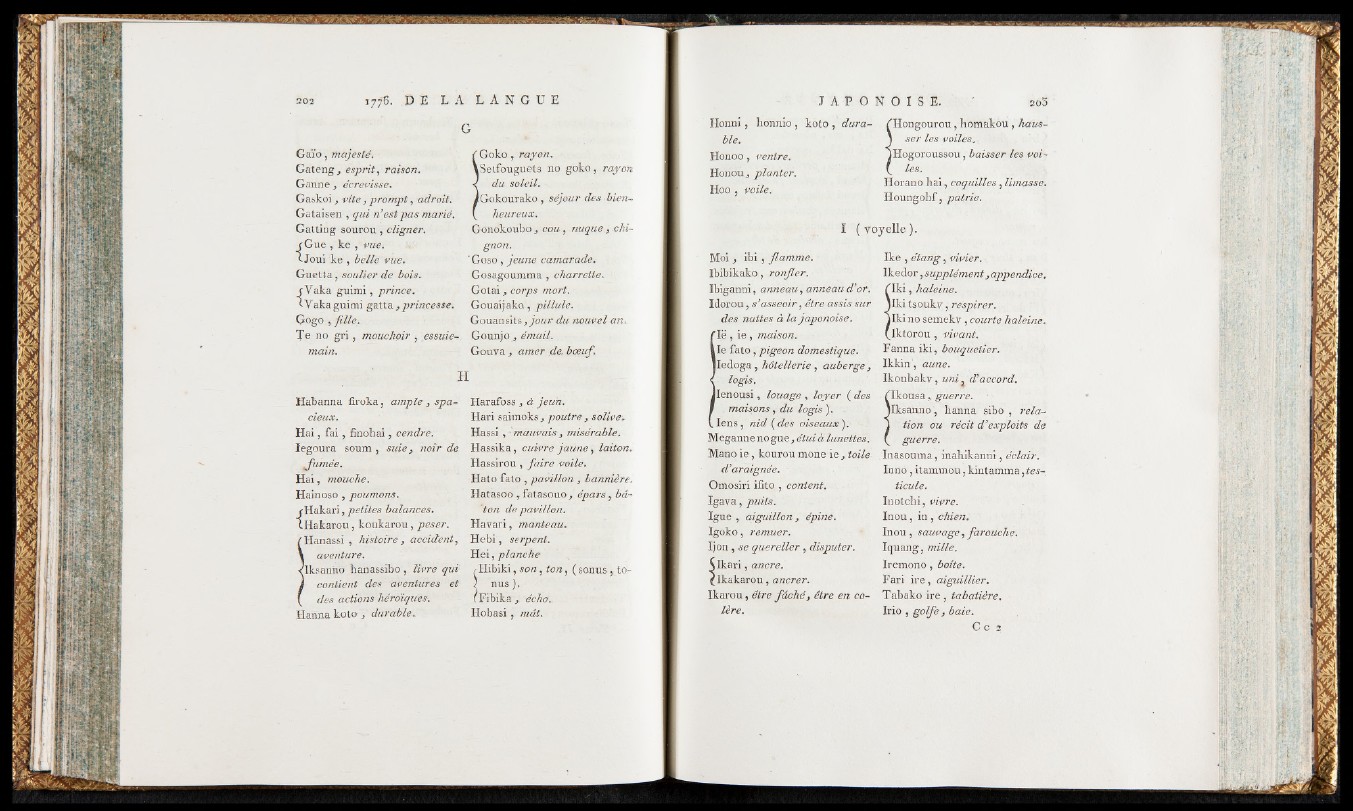 202 1776. DE LA LANGUE
G
Gaïo, majesté.
Gateng, esprit, raison.
Ganne, écrevisse.
Gaskoi, vite, prompt, adroit.
Gataisen, qui n'est pas marié.
Gatting sourou, cligner.
Gue, ke, vue.
Joui ke, belle vue.
Guetta, soulier de bois.
Vaka guimi, prince.
Vaka guimi gatta, princesse.
Gogo, fille.
Te no gri, mouchoir, essuie-
main.
Goko, rayon.
Setfouguets no goko, rayon
du soleil.
Gokourako, séjour des bien-
heureux.
Gonokoubo, cou, nuque, chi-
gnon.
Goso, jeune camarade.
Gosagoumma, charrette.
Gotai, corps mort.
Gouaijako, pillule.
Gouansits, jour du nouvel an.
Gounjo, émail.
Gouva, amer de bœuf.
H
Habanna firoka, ample, spa-
cieux.
Hai, fai, finohai, cendre.
Iegoura soum, suie, noir de
fumée.
Hai, mouche.
Hainoso, poumons.
Hakari, petites balances.
Hakarou, koukarou, peser.
Hanassi, histoire, accident,
aventure.
Iksanno hanassibo, livre qui
contient des aventures et
des actions héroïques.
Hanna koto, durable.
Harafoss, à jeun.
Hari saimoks, poutre, solive.
Hassi, mauvais, misérable.
Hassika, cuivre jaune, laiton.
Hassirou, faire voile.
Hato fato, pavillon, bannière.
Hatasoo, fatasouo, épars, bâ-
ton de pavillon.
Havari, manteau.
Hebi, serpent.
Hei, planche
Hibiki, son, ton, (sonus, to-
nus).
Fibika, écho.
Hobasi, mât.
JAPONOISE. 203
Honni, honnio, koto, dura-
ble.
Honoo, ventre.
Honou, planter.
Hoo, voile.
Hongourou, homakou, haus-
ser les voiles.
Hogoroussou, baisser les voi-
les.
Horano hai, coquilles, limasse.
Houngohf, patrie.
I (voyelle).
Moi, ibi, flamme.
Ibibikako, ronfler.
Ibiganni, anneau, anneau d'or.
Idorou, s'asseoir, être assis sur
des nattes à la japonoise.
Ië, ie, maison.
Ie fato, pigeon domestique.
Iedoga, hôtellerie, auberge,
logis.
Ienousi, louage, loyer (des
maisons, du logis).
Iens, nid (des oiseaux).
Meganne no gue, étui à lunettes.
Mano ie, kourou mone ie, toile
d'araignée.
Omosiri ifito, content.
Igava, puits.
Igue, aiguillon, épine.
Igoko, remuer.
Ijou, se quereller, disputer.
Ikari, ancre.
Ikakarou, ancrer.
Ikarou, être fâché, être en co-
lère.
Ike, étang, vivier.
Ikedor, supplément, appendice.
Iki, haleine.
Iki tsoukv, respirer.
Iki no semekv, courte haleine.
Iktorou, vivant.
Fanna iki, bouquetier.
Ikkin, aune.
Ikoubakv, uni, d'accord.
Ikousa, guerre.
Iksanno, hanna sibo, rela-
tion ou récit d'exploits de
guerre.
Inasouma, inahikanni, éclair.
Inno, itammou, kintamma, tes-
ticule.
Inotchi, vivre.
Inou, in, chien.
Inou, sauvage, farouche.
Iquang, mille.
Iremono, boîte.
Fari ire, aiguillier.
Tabako ire, tabatière.
Irio, golfe, baie.
Cc 2